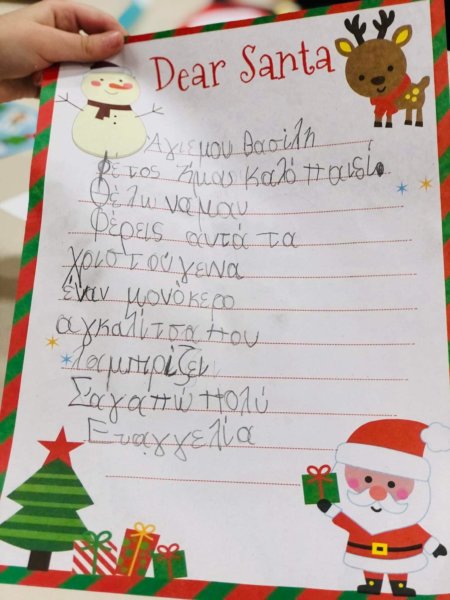 Dear Santa
Αγιεμου θασιλη
Φέτος ήμου καλό παιδί
Θέλω ναμου
φέρεις αυτά τα
χριστούγεννα
έναν μονόκερο
αγκαλίτσα που
λαμπιρίζει
Σαγαπώ πολύ
Εταγγελία